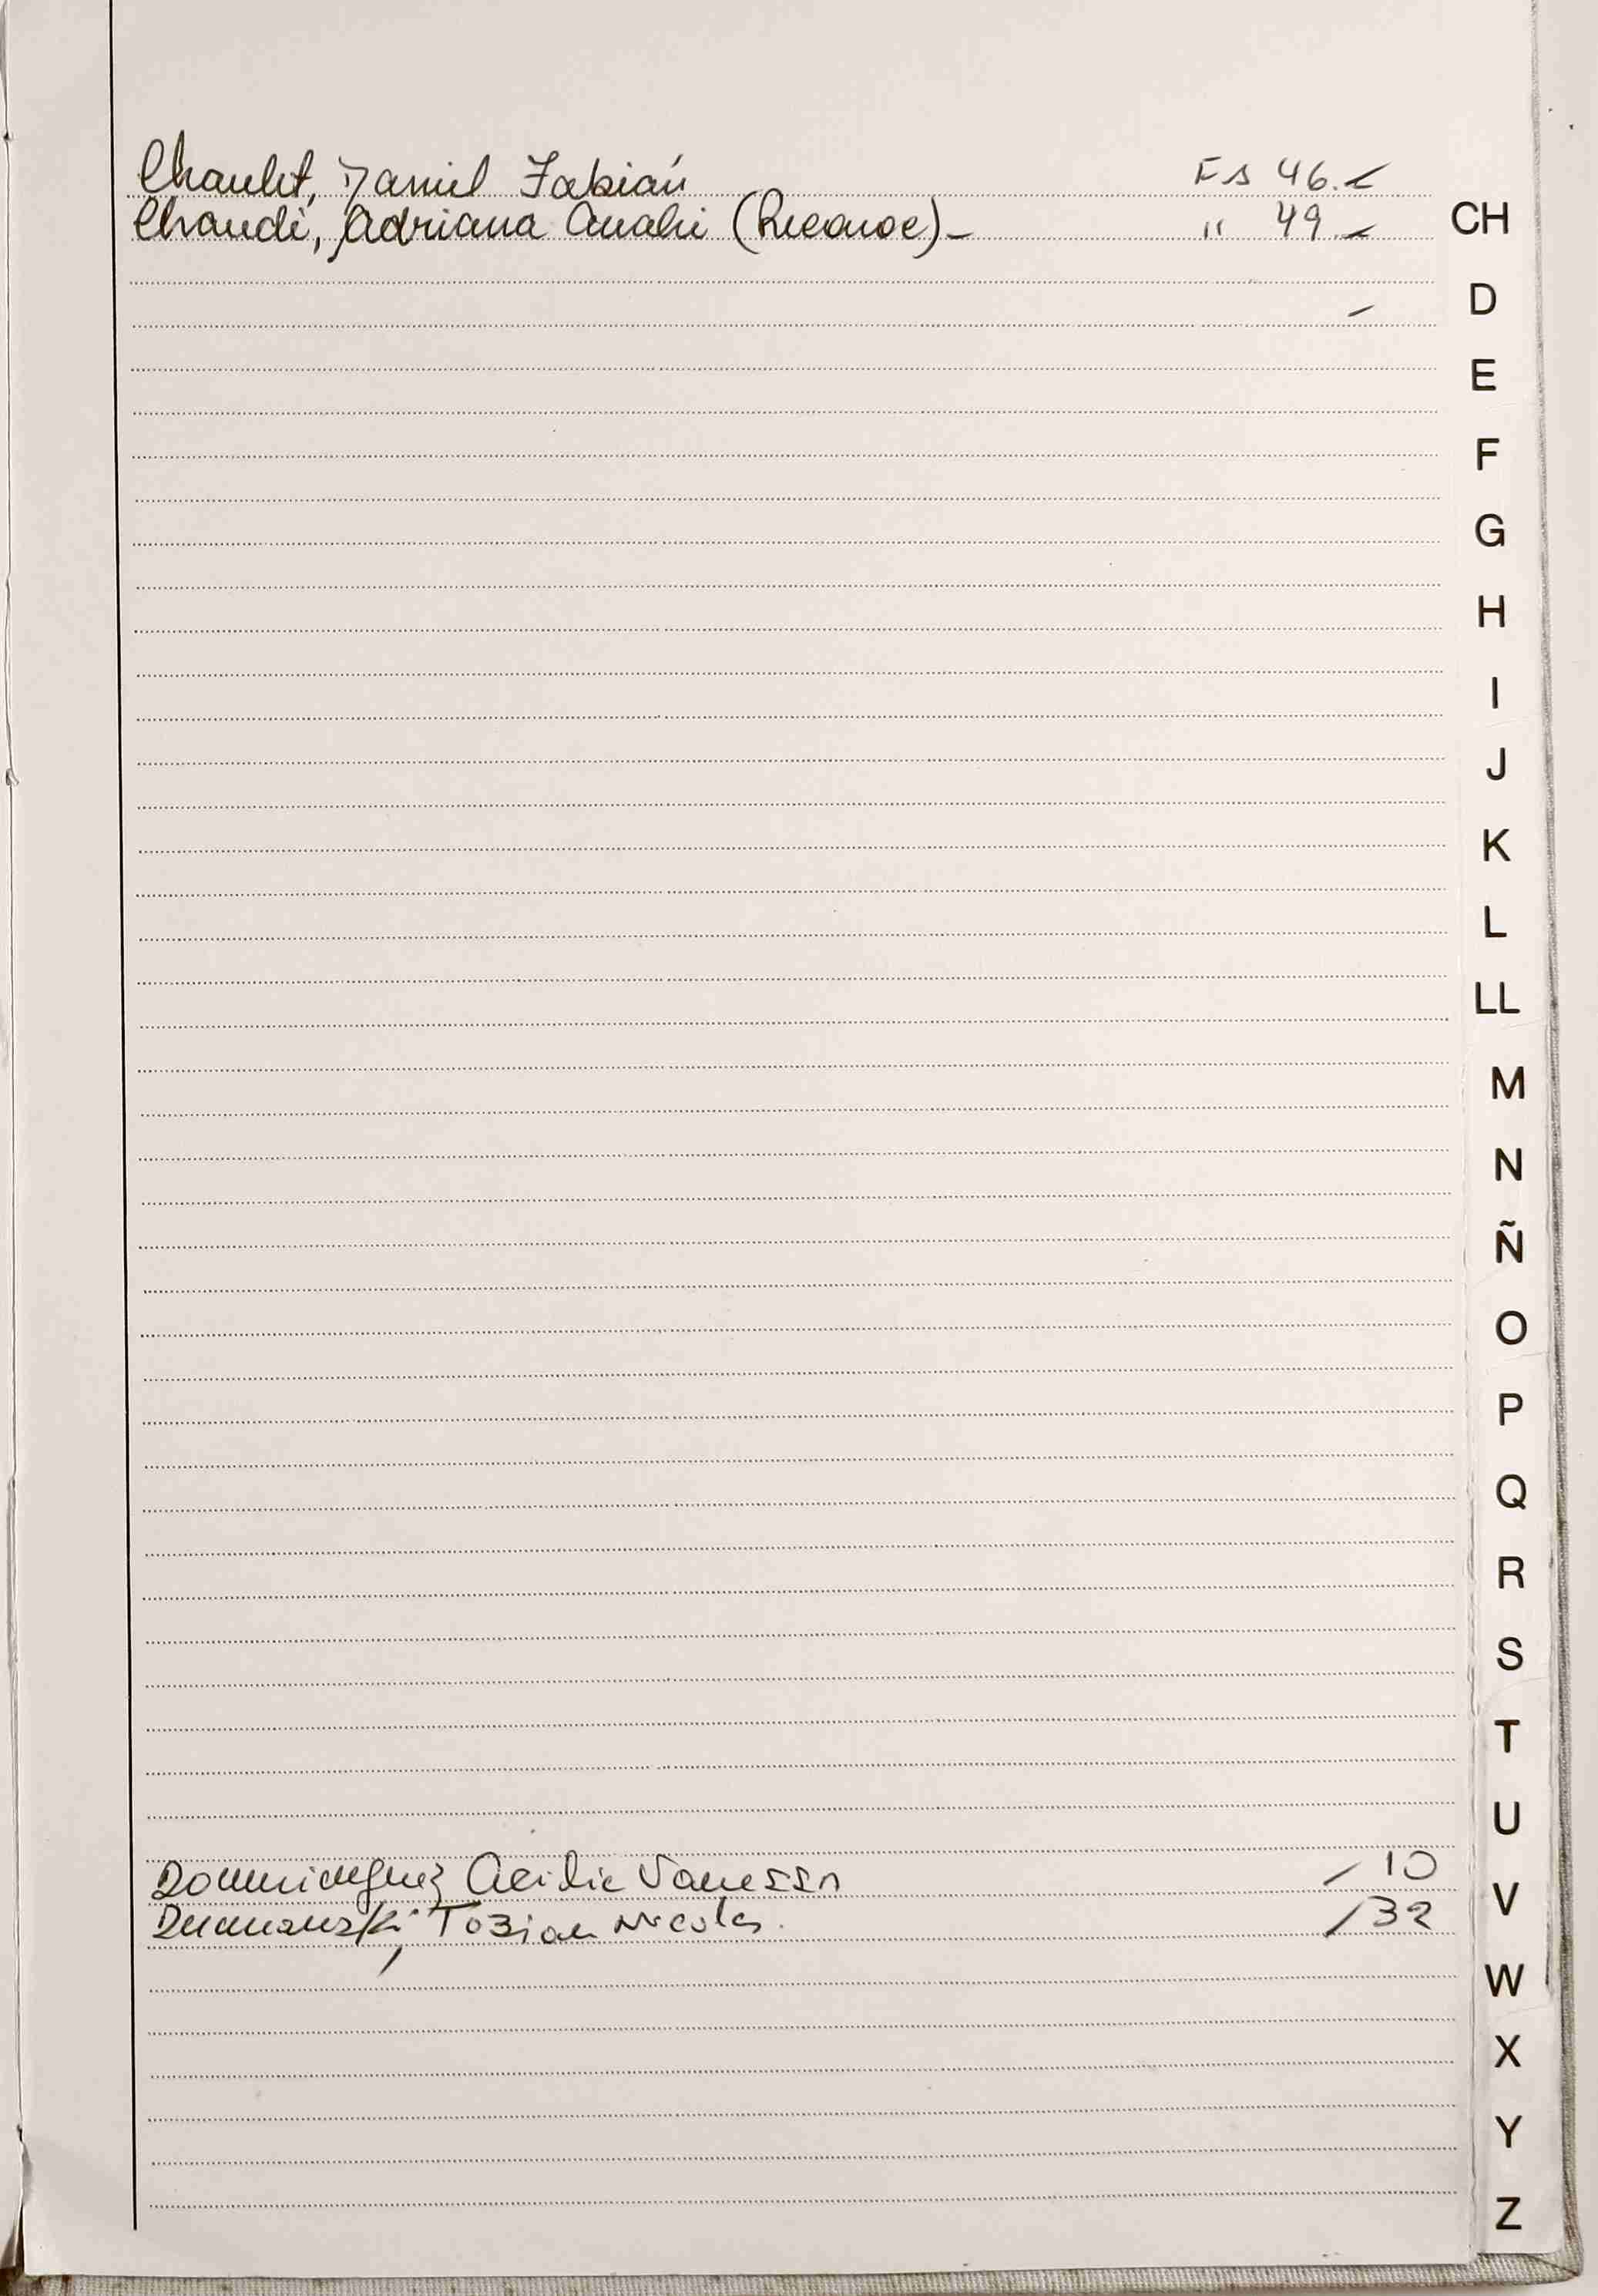 Chault, Daniel Fabián Fs 46.-
Chaudi, Adriana Anahi (Reconoc)- " 49.-
CH
D
E
F
G
H
I
J
K
L
LL
M
N
Ñ
O
P
Q
R
S
T
U
Dominguez Vanessa / 10
V
Dumanski, Tobian Nicolas. / 32
W
X
Y
Z